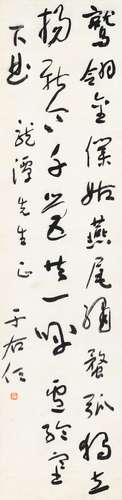 鷲翎金僕姑燕尾繡蝥弧獨立
揚新令千營共一呼盧綸塞
下曲
龍潭先生正
于右任